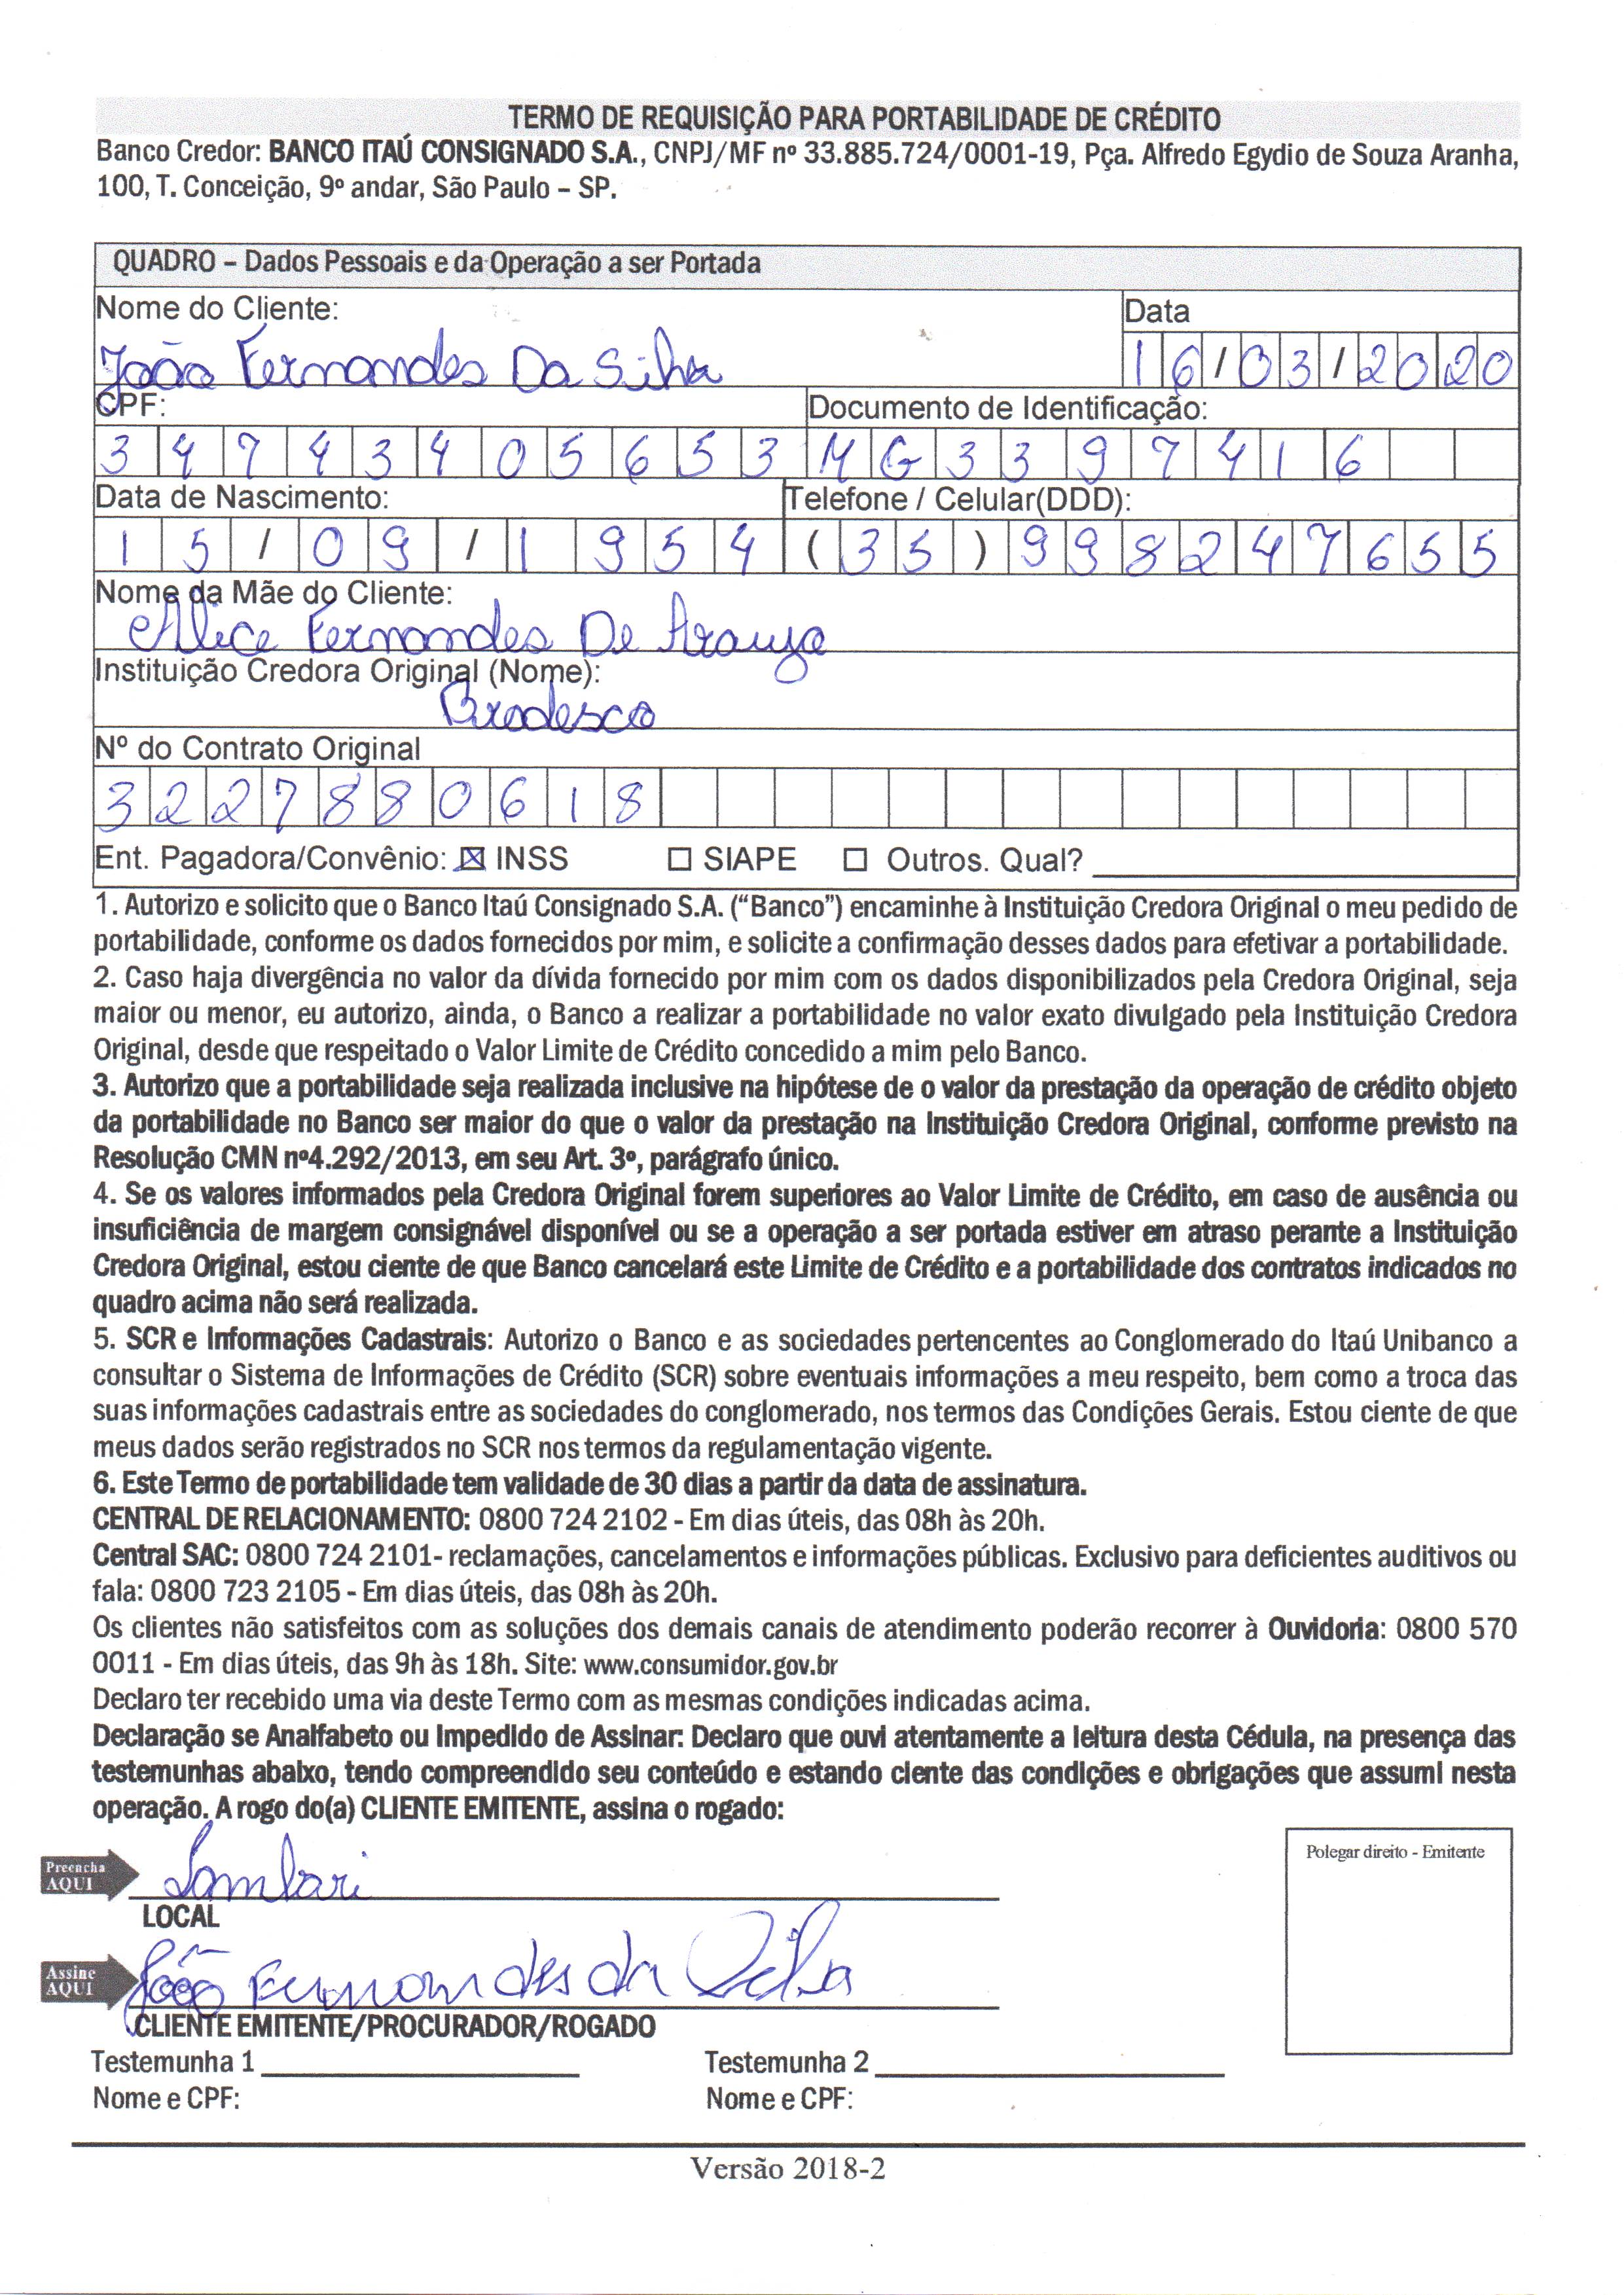 TERMO DE REQUISIÇÃO PARA PORTABILIDADE DE CRÉDITO
Banco Credor: BANCO ITAÚ CONSIGNADO S.A., CNPJ/MF nº 33.885.724/0001-19, Pça. Alfredo Egydio de Souza Aranha,
100, T. Conceição, 9º andar, São Paulo – SP.
QUADRO – Dados Pessoais e da Operação a ser Portada
Nome do Cliente: Data
João Fernandes Da Silva 16/03/2020
CPF: Documento de Identificação:
34743405653 MG3397416
Data de Nascimento: Telefone / Celular(DDD):
15/09/1954 (35)998247655
Nome da Mãe do Cliente:
Alice Fernandes De Araujo
Instituição Credora Original (Nome):
Bradesco
Nº do Contrato Original
3227880618
Ent. Pagadora/Convênio: ☒ INSS ☐ SIAPE ☐ Outros. Qual?
1. Autorizo e solicito que o Banco Itaú Consignado S.A. (“Banco”) encaminhe à Instituição Credora Original o meu pedido de
portabilidade, conforme os dados fornecidos por mim, e solicite a confirmação desses dados para efetivar a portabilidade.
2. Caso haja divergência no valor da dívida fornecido por mim com os dados disponibilizados pela Credora Original, seja
maior ou menor, eu autorizo, ainda, o Banco a realizar a portabilidade no valor exato divulgado pela Instituição Credora
Original, desde que respeitado o Valor Limite de Crédito concedido a mim pelo Banco.
3. Autorizo que a portabilidade seja realizada inclusive na hipótese de o valor da prestação da operação de crédito objeto
da portabilidade no Banco ser maior do que o valor da prestação na Instituição Credora Original, conforme previsto na
Resolução CMN nº4.292/2013, em seu Art. 3º, parágrafo único.
4. Se os valores informados pela Credora Original forem superiores ao Valor Limite de Crédito, em caso de ausência ou
insuficiência de margem consignável disponível ou se a operação a ser portada estiver em atraso perante a Instituição
Credora Original, estou ciente de que Banco cancelará este Limite de Crédito e a portabilidade dos contratos indicados no
quadro acima não será realizada.
5. SCR e Informações Cadastrais: Autorizo o Banco e as sociedades pertencentes ao Conglomerado do Itaú Unibanco a
consultar o Sistema de Informações de Crédito (SCR) sobre eventuais informações a meu respeito, bem como a troca das
suas informações cadastrais entre as sociedades do conglomerado, nos termos das Condições Gerais. Estou ciente de que
meus dados serão registrados no SCR nos termos da regulamentação vigente.
6. Este Termo de portabilidade tem validade de 30 dias a partir da data de assinatura.
CENTRAL DE RELACIONAMENTO: 0800 724 2102 - Em dias úteis, das 08h às 20h.
Central SAC: 0800 724 2101- reclamações, cancelamentos e informações públicas. Exclusivo para deficientes auditivos ou
fala: 0800 723 2105 - Em dias úteis, das 08h às 20h.
Os clientes não satisfeitos com as soluções dos demais canais de atendimento poderão recorrer à Ouvidoria: 0800 570
0011 - Em dias úteis, das 9h às 18h. Site: www.consumidor.gov.br
Declaro ter recebido uma via deste Termo com as mesmas condições indicadas acima.
Declaração se Analfabeto ou Impedido de Assinar: Declaro que ouvi atentamente a leitura desta Cédula, na presença das
testemunhas abaixo, tendo compreendido seu conteúdo e estando ciente das condições e obrigações que assumi nesta
operação. A rogo do(a) CLIENTE EMITENTE, assina o rogado:
Polegar direito - Emitente
Preencha
AQUI
Lambari
LOCAL
Assine
AQUI
João Fernandes da Silva
CLIENTE EMITENTE/PROCURADOR/ROGADO
Testemunha 1 Testemunha 2
Nome e CPF: Nome e CPF:
Versão 2018-2